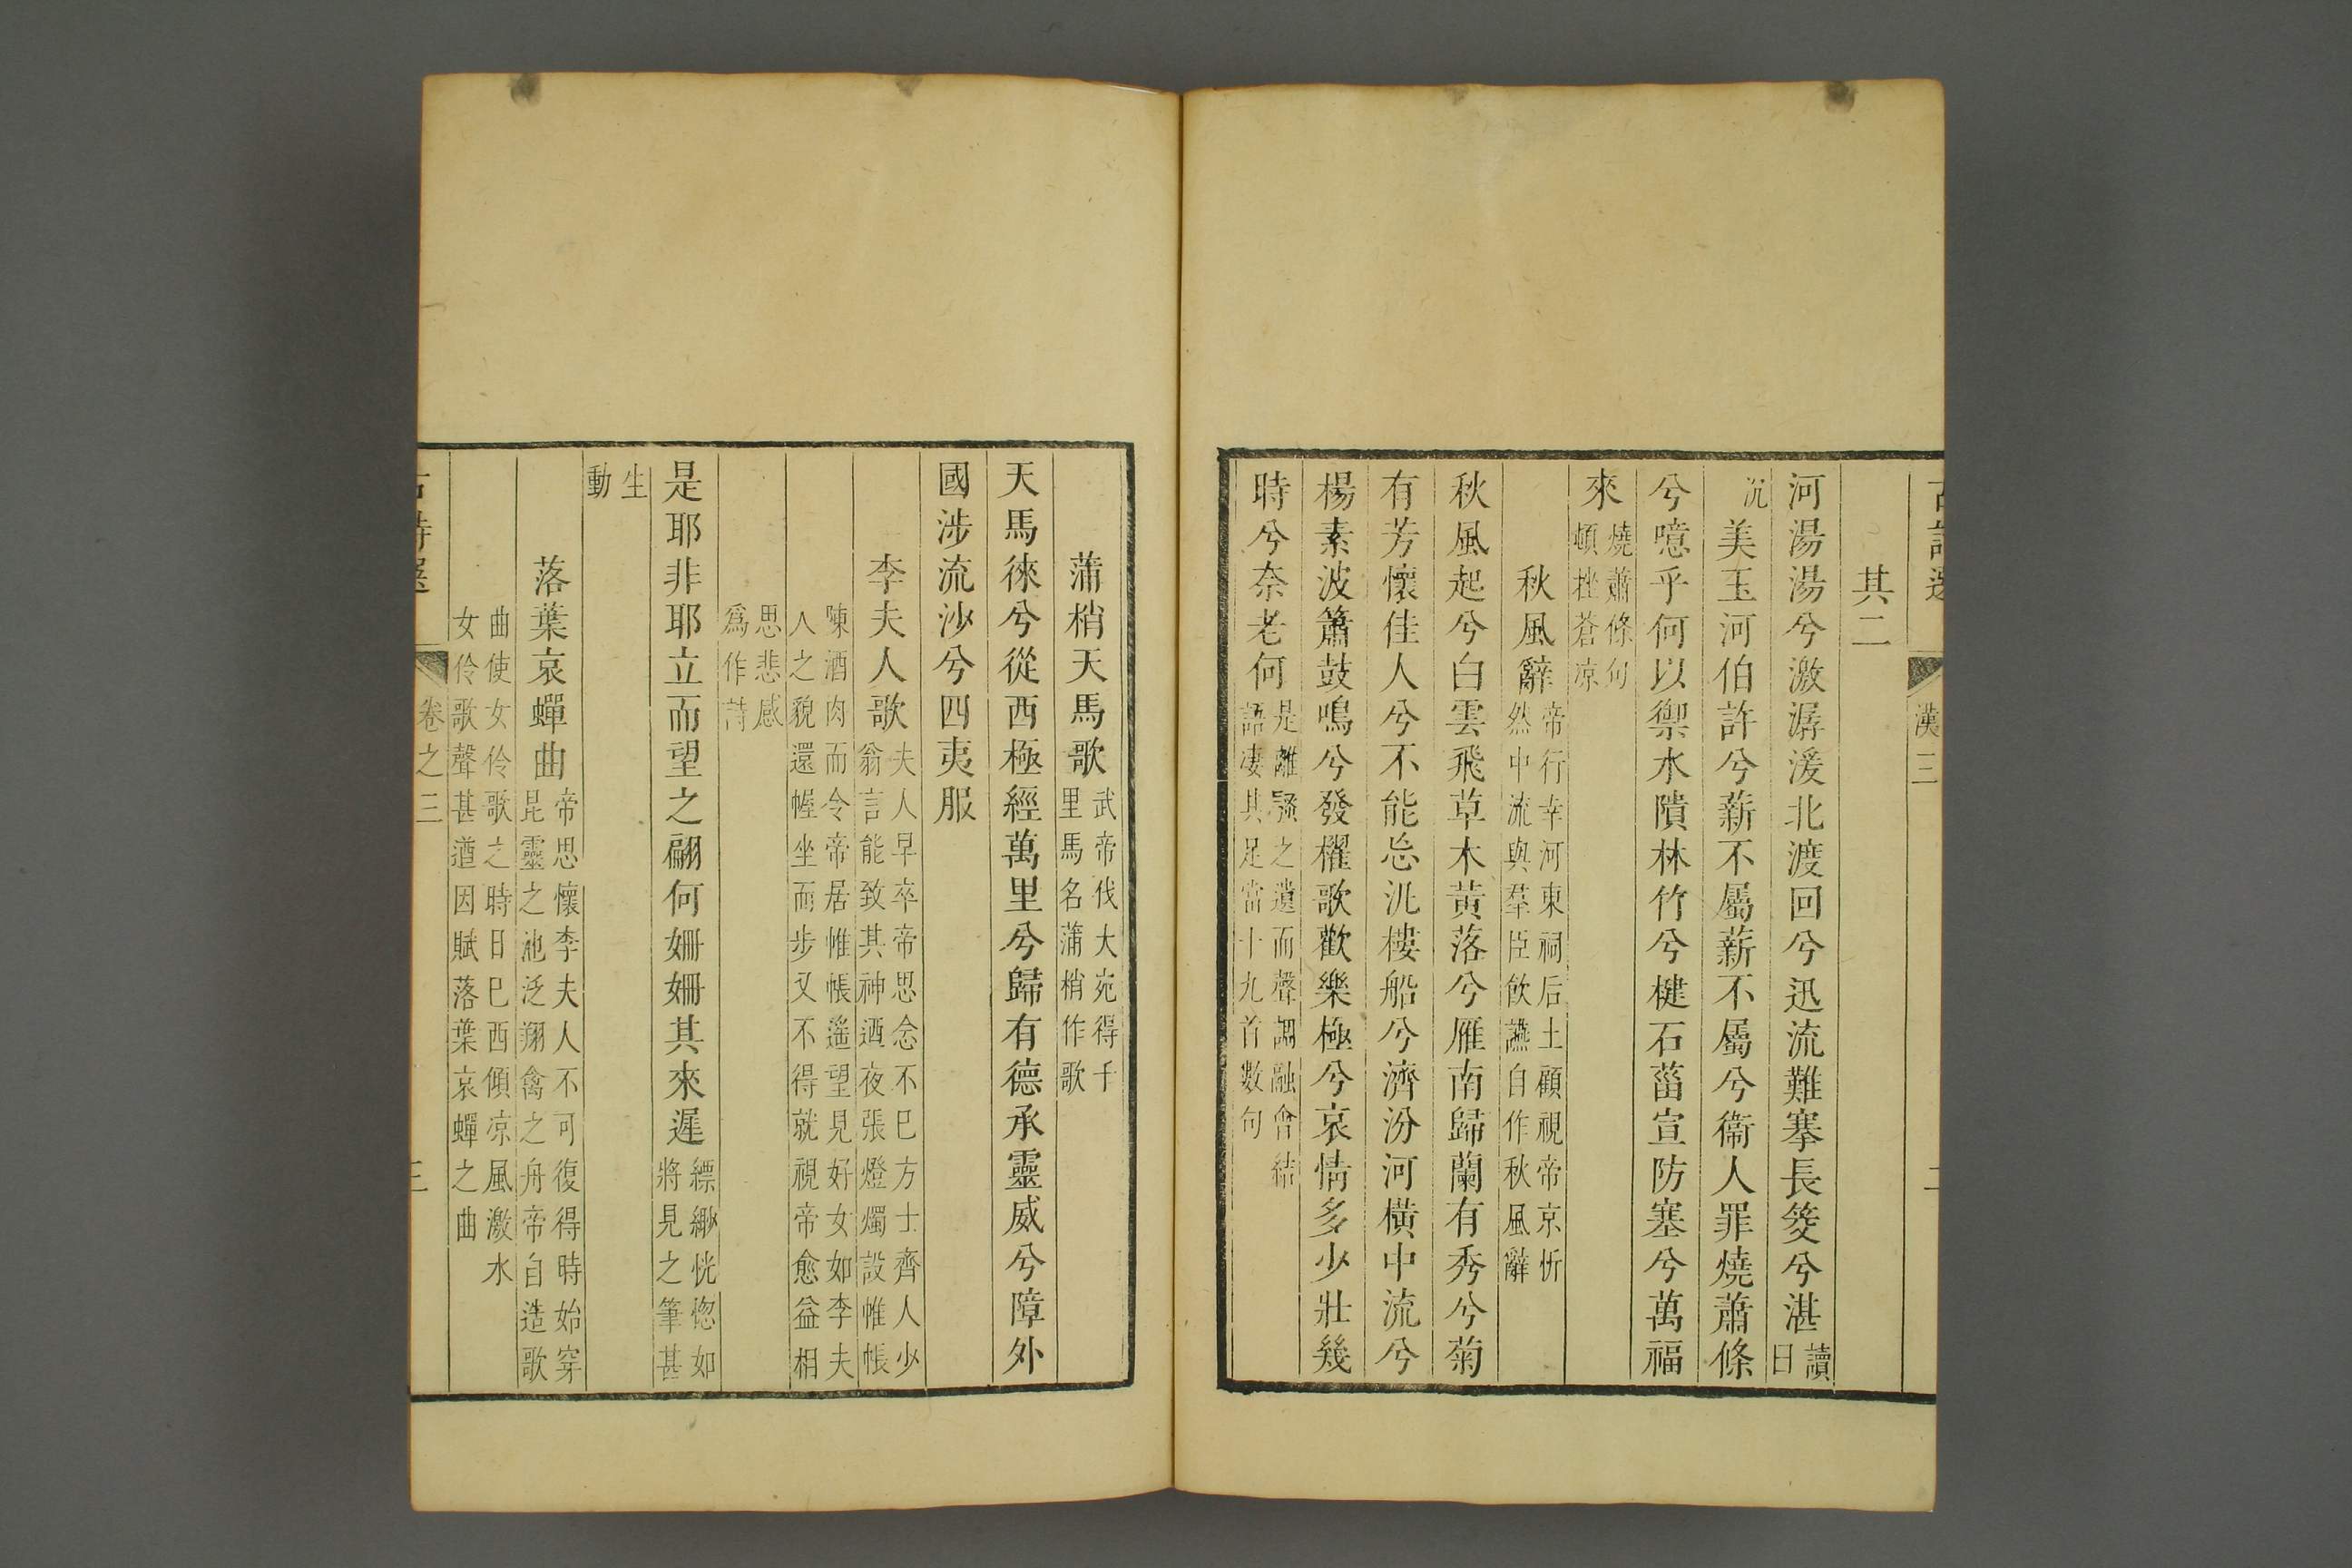 漢三
其二
河湯湯兮激潺湲北渡回兮迅流難搴長筊兮湛讀曰
沉美玉河伯許兮薪不屬薪不屬兮衞人罪燒蕭條
兮噫乎何以禦水隤林竹兮楗石菑宣防塞兮萬福
來燒蕭條句頓挫蒼凉
秋風辭帝行幸河東祠后土顧視帝京忻然中流與羣臣飲讌自作秋風辭
秋風起兮白雲飛草木黃落兮雁南歸蘭有秀兮菊
有芳懷佳人兮不能忘汎樓船兮濟汾河橫中流兮
楊素波簫鼓鳴兮發櫂歌歡樂極兮哀情多少壯幾
時兮奈老何是離騷之遺而聲調融會結語凄其足當十九首數句
蒲梢天馬歌武帝伐大宛得千里馬名蒲梢作歌
天馬徠兮從西極經萬里兮歸有德承靈威兮障外
國涉流沙兮四夷服
李夫人歌夫人早卒帝思念不已方士齊人少翁言能致其神迺夜張燈燭設帷帳
陳酒肉而令帝居帷帳遙望見好女如李夫人之貌還幄坐而步又不得就視帝愈益相
思悲感爲作詩
是耶非耶立而望之翩何姍姍其來遲縹緲恍惚如將見之筆甚
生動
落葉哀蟬曲帝思懷李夫人不可復得時始穿昆靈之池泛翔禽之舟帝自造歌
曲使女伶歌之時日已西傾凉風激水女伶歌聲甚遒因賦落葉哀蟬之曲
卷之三
三